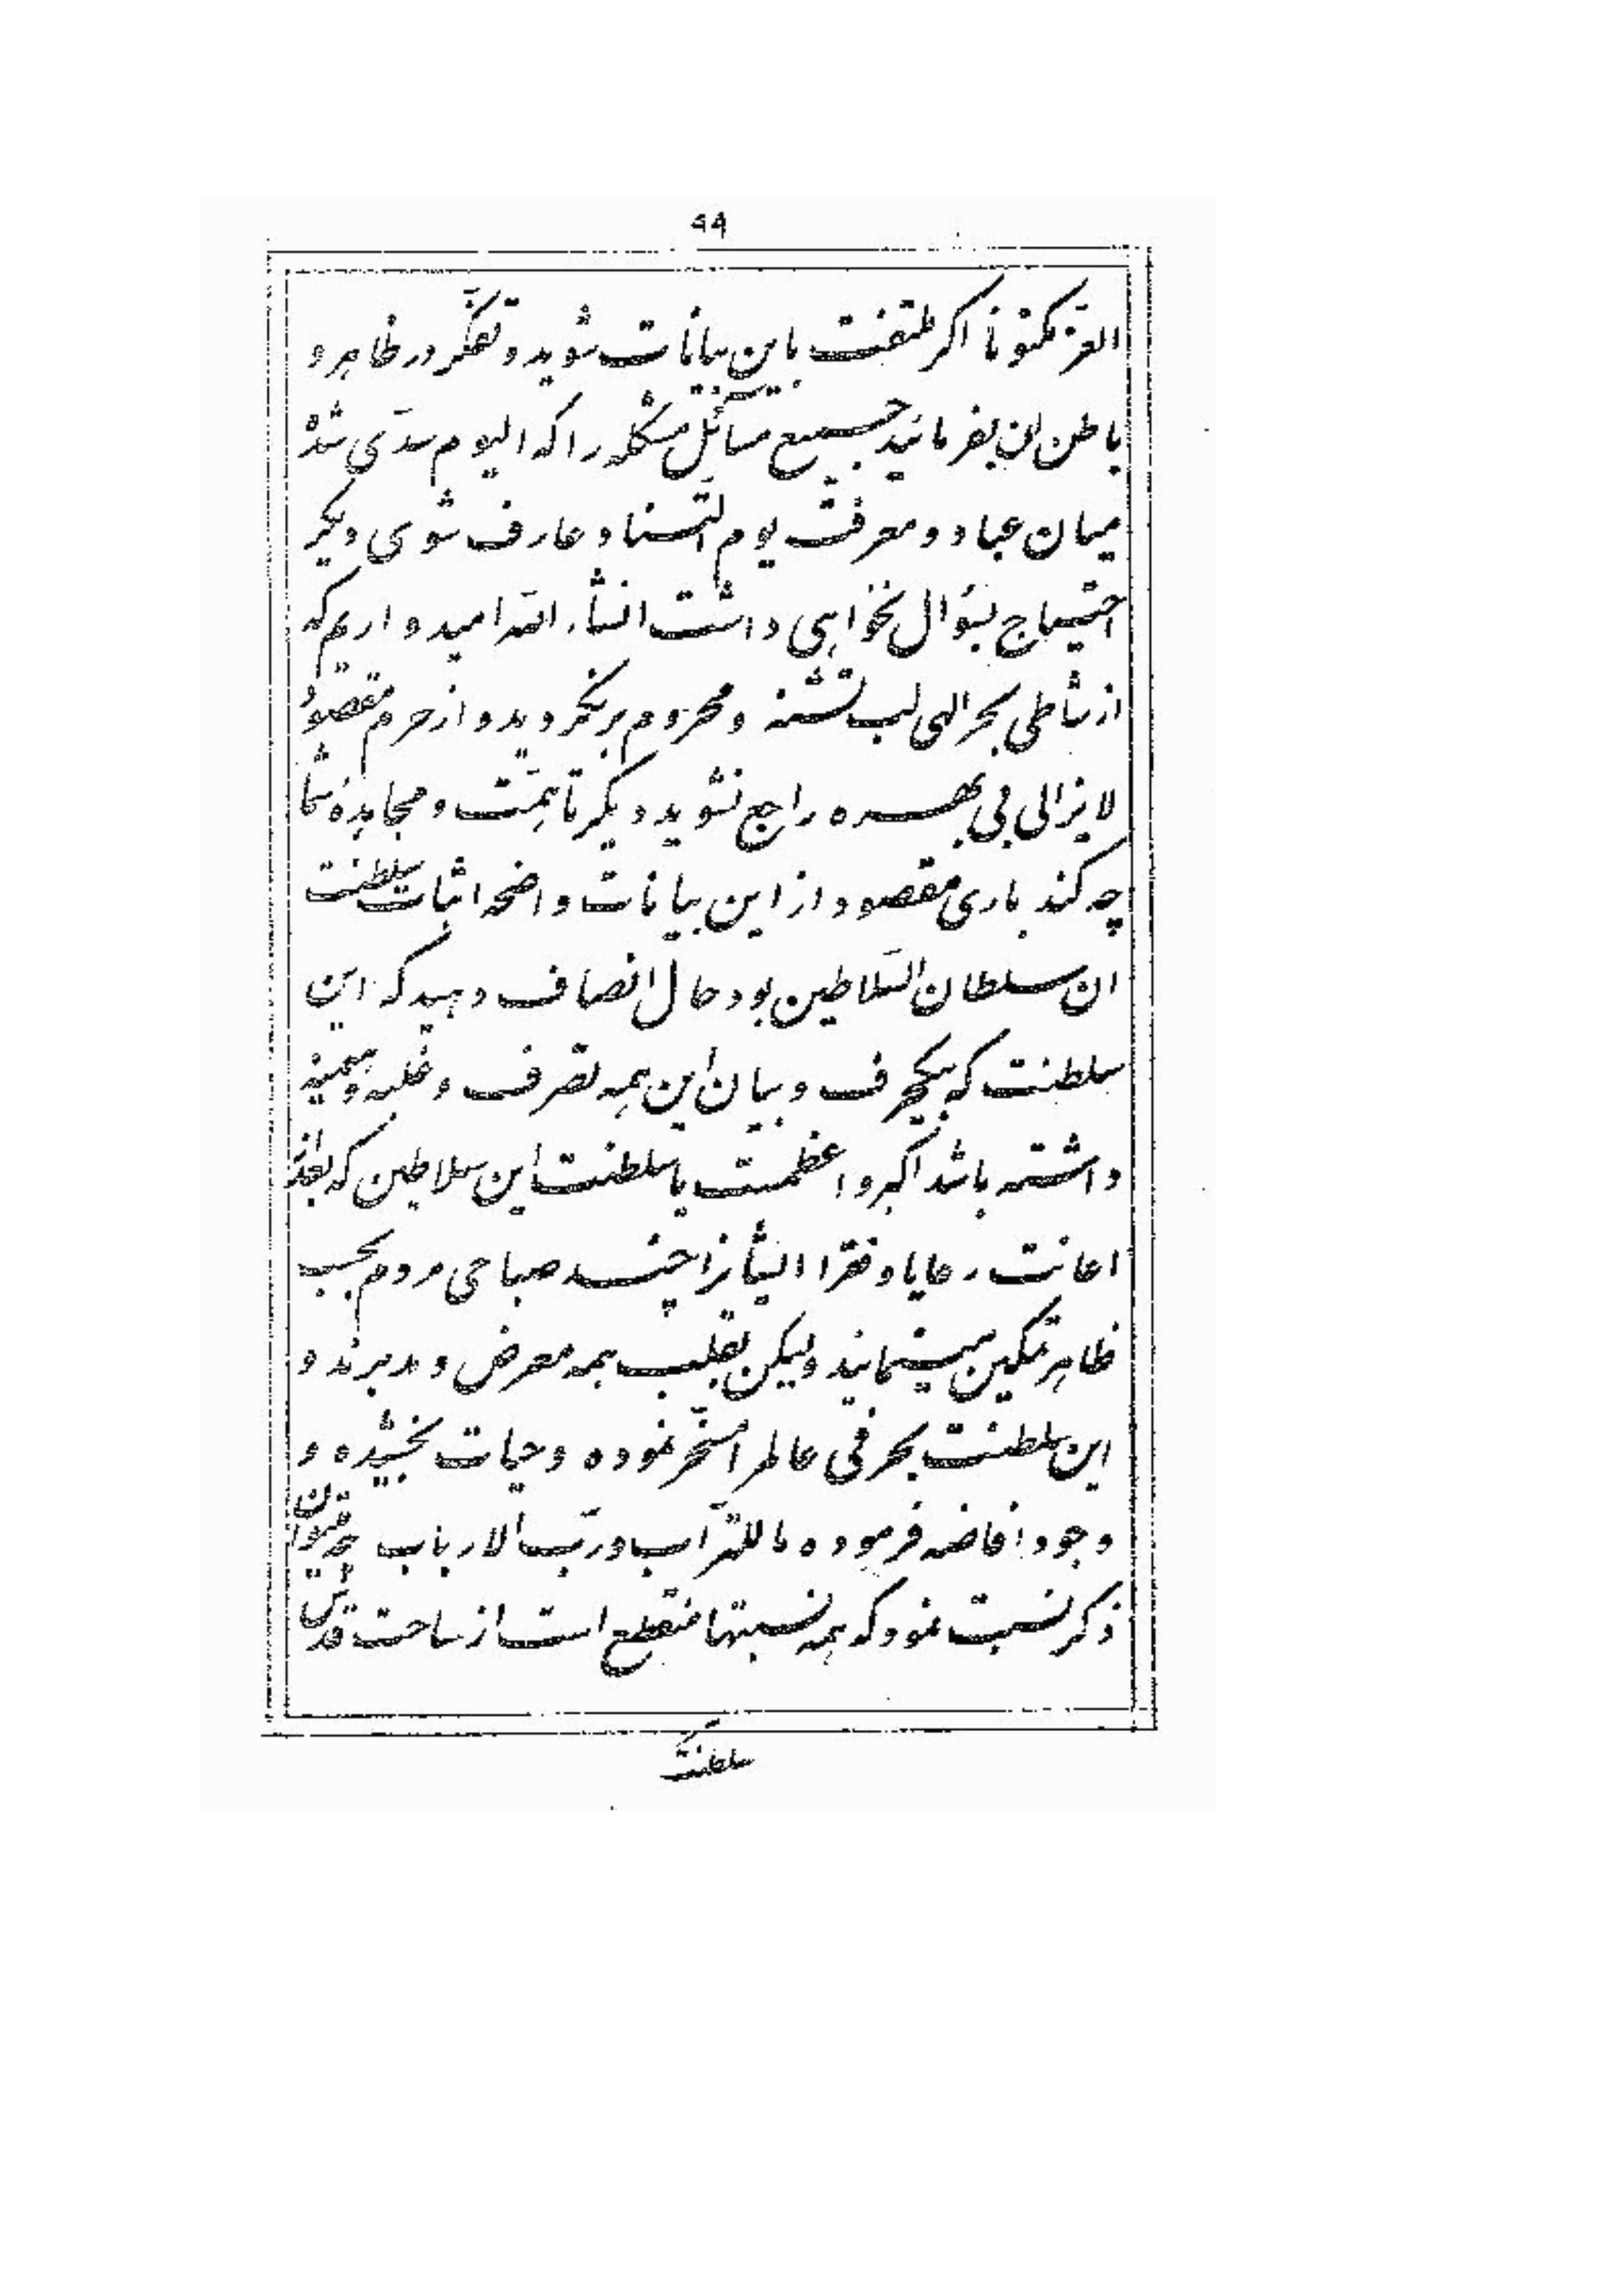 ۹۹
العزّ مکنونا اکر ملتفت باین بیانات شوید و تفکّر در ظاهر و
باطن ان بفرمائید جمیع مسائل مشکله را که الیوم سدّی شده
میان عباد و معرفت یوم التّناد عارف شوی دیکر
احتیاج بسؤال نخواهی داشت انشاء الله امیدواریم که
از شاطی بحر الهی لب تشنه و محروم برنکردید و از حرم مقصود
لا یزالی بی بهره راجع نشوید دیکر تا همّت و مجاهده شما
چه کند باری مقصود از این بیانات واضحه اثبات سلطنت
ان سلطان السّلاطین بود حال انصاف دهید که این
سلطنت که بیکحرف و بیان این همه تصرف و غلبه و هیمنه
داشته باشد اکبر و اعظمست یا سلطنت این سلاطین که بعد از
اعانت رعایا و فقرا ایشانرا چند صباحی مردم بحسب
ظاهر تمکین مینمایند ولیکن بقلب همه معرض و مدبرند و
این سلطنت بحرفی عالم را مسخّر نموده و حیات بخشیده و
وجود افاضه فرموده ما للتّراب و ربّ الارباب چه میتوان
ذکر نسبت نمود که همه نسبتها منقطع است از ساحت قدس
سلطنت